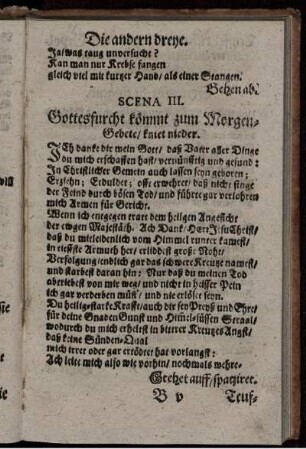 Die andern dreye.
Ja/was taug unversucht?
Kan man nur Krebse fangen
gleich viel mit kurtzer Hand/als einer Stangen.
Gehen ab.
SCENA III.
Gottesfurcht kömmt zum Morgen-
Gebete/kniet nieder.
ICh danke dir mein Gott/daß Vater aller Dinge
Du mich erschaffen hast/vernünftig und gesund:
In Christlicher Gemein auch lassen seyn geboren;
Erziehn; Erduldet; offt erwehret/daß nicht singe
der Feind durch bösen Tod/und führet gar verlohren
mich Armen für Gericht.
Wenn ich entgegen trare dem heilgen Angesicht
der ewgen Majestäth. Ach Dank/Herr Jesu Christ/
daß du mitleidenlich vom Himmel runter kamest/
in tieffste Armuth her/erliddest große Noht/
Verfolgung/endlich gar das schwere Kreutze namest/
und starbest daran hin: Nur daß du meinen Tod
abtriebest von mir weg/und nicht in heisser Pein
ich gar verderben müst/und nie erlöset seyn.
Du heilig-starke Kraft/auch dir sey Preyß und Ehre/
für deine Gnaden Gunst und Himmel-süssen Straal/
wodurch du mich erhelest in bittrer Kreutzes Angst/
daß keine Sünden-Qual
mich irret oder gar ertödtet hat vorlangst:
Ich leite mich also wie vorhin/nochmals wehre-
Stehet auff/spatziret.
B v
Teuf-